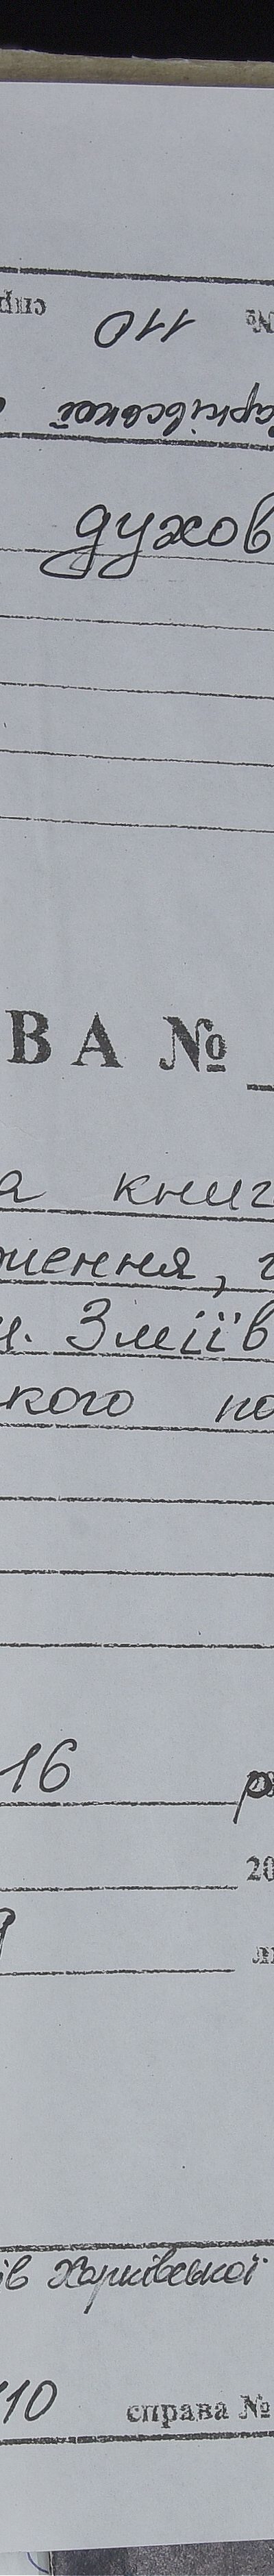 № 110 спр
Харківської
духов
ВА №
а книг
ження, г
м. Зміїв
кого по
16 р
20
9 л
ів Харківської
110 справа №